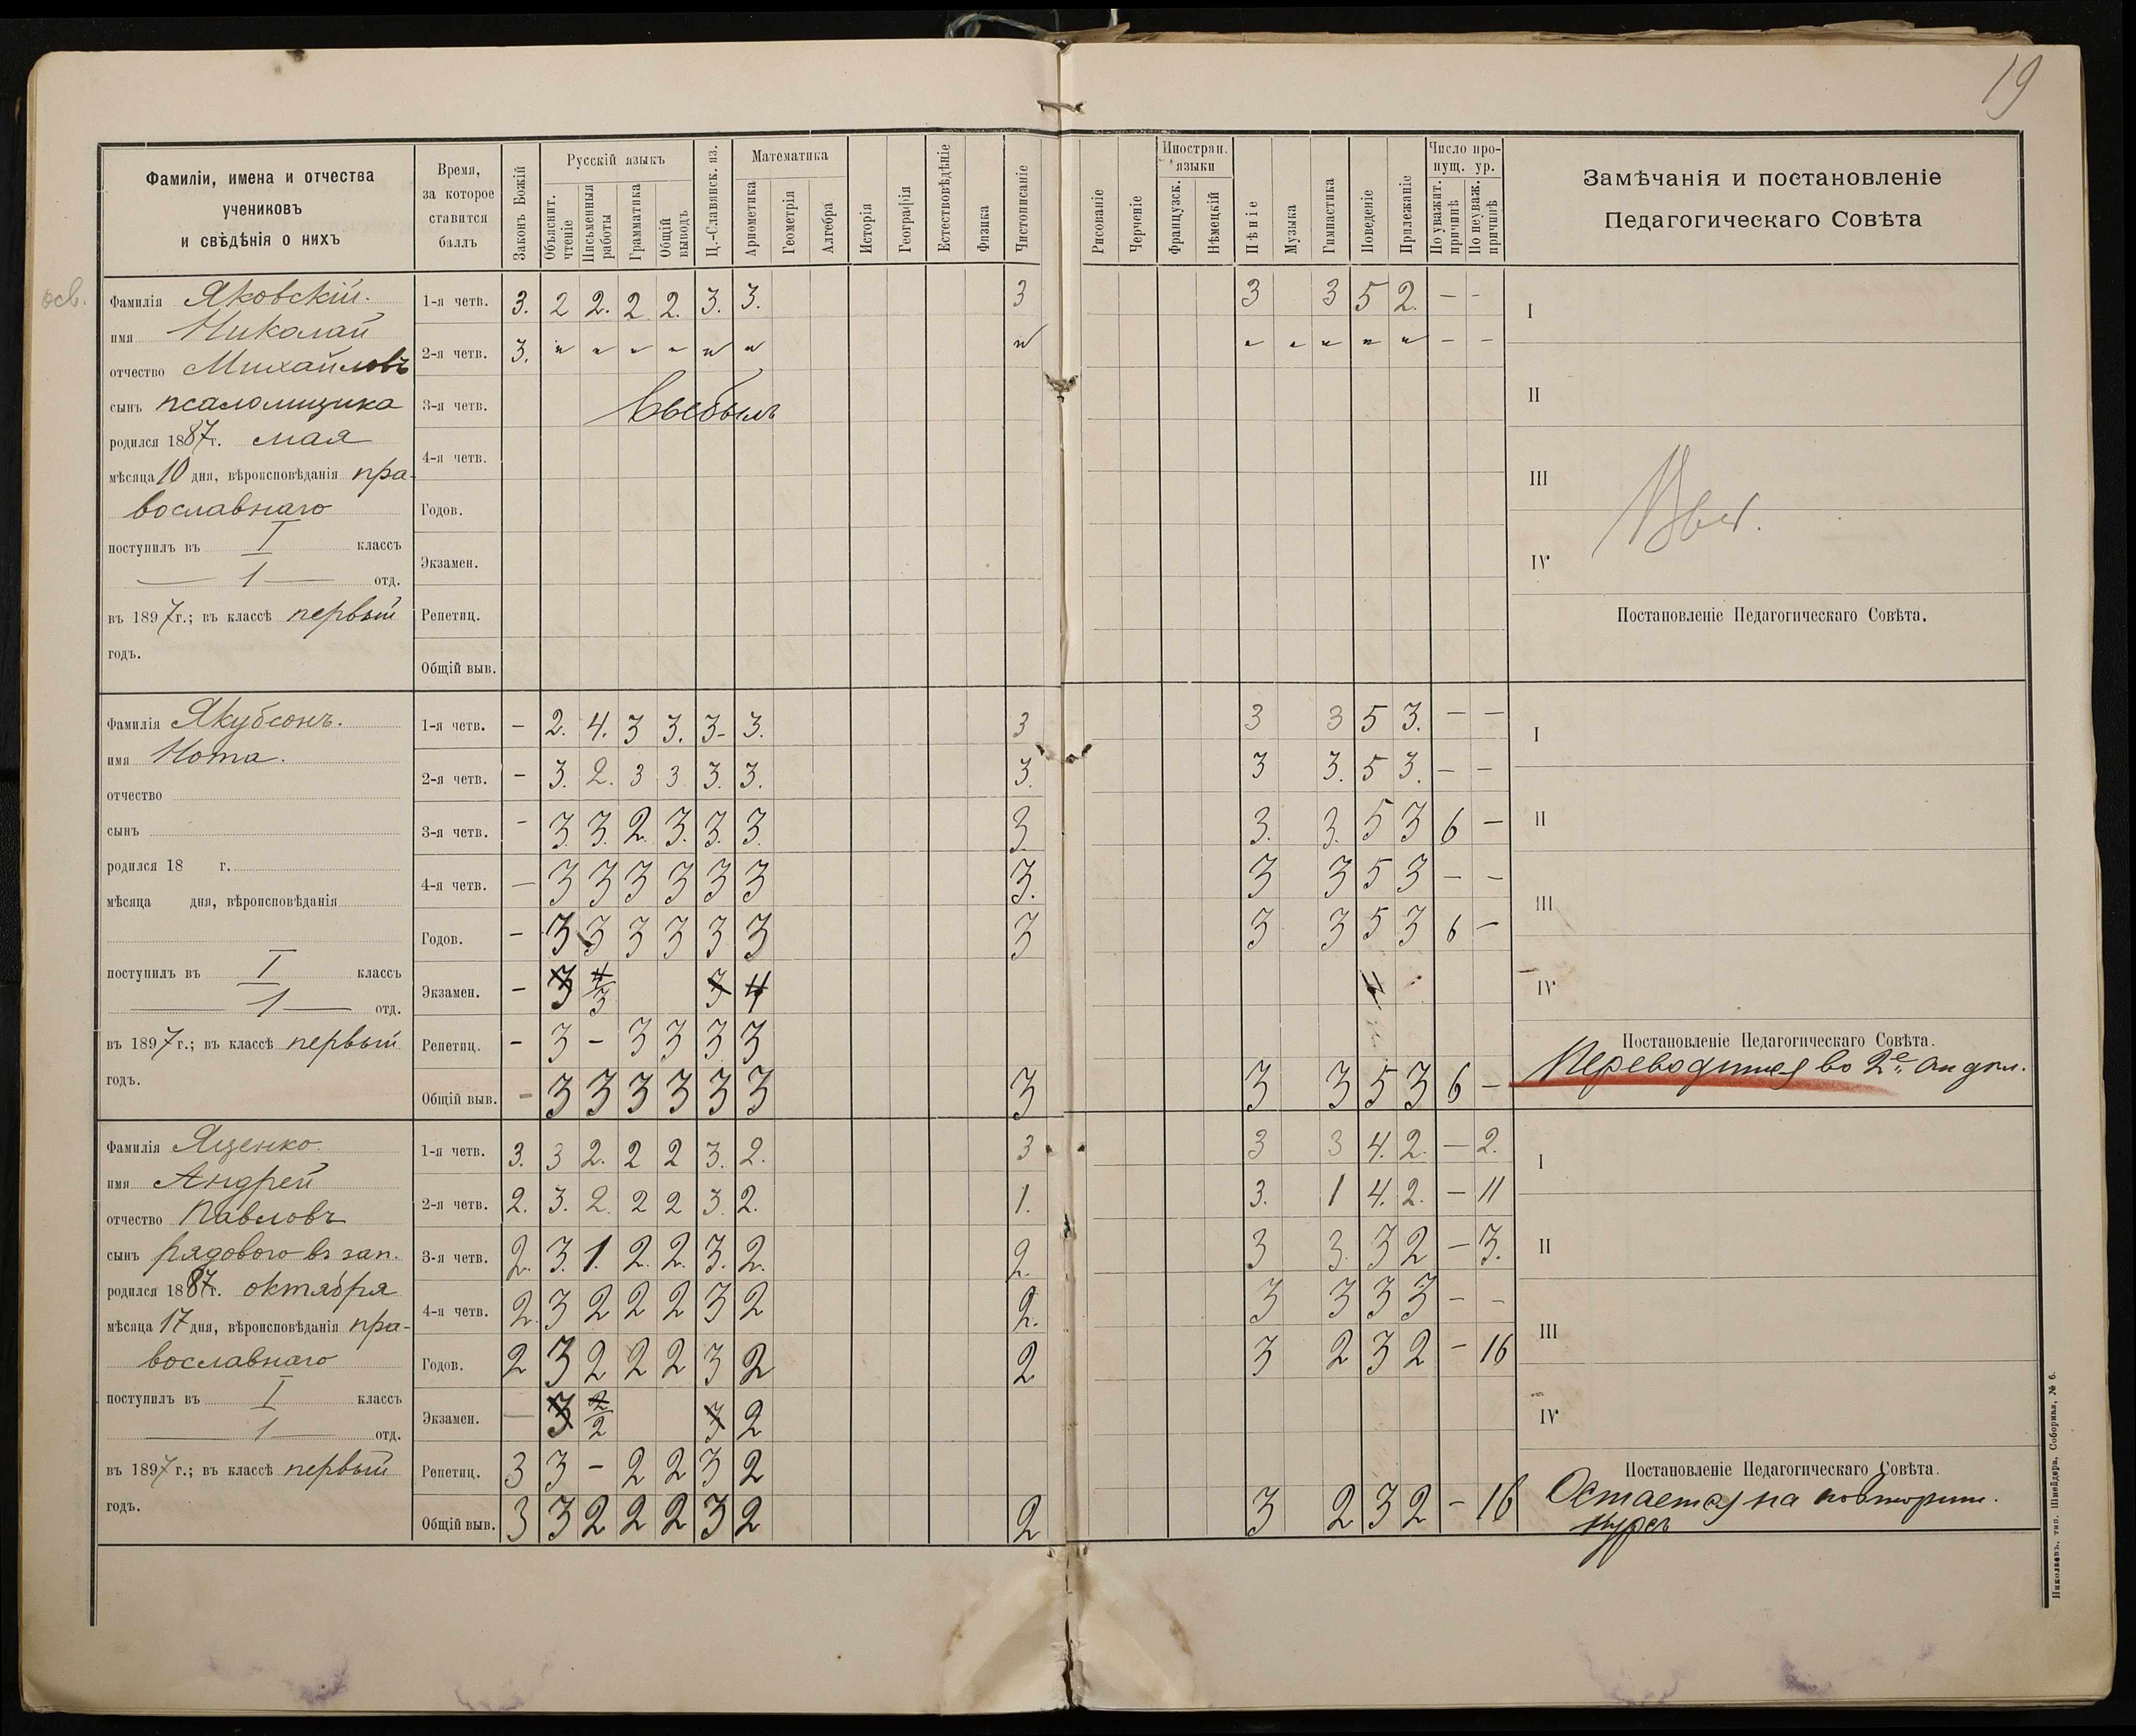 19
Фамиліи, имена и отчества
учениковъ
и свѣдѣнія о нихъ
Время,
за которое
ставится
баллъ
Законъ Божій
Русскій языкъ
Объяснит. чтеніе
Письменныя работы
Грамматика
Общій выводъ
Ц.-Славянск. яз.
Математика
Ариѳметика
Геометрія
Алгебра
Исторія
Географія
Естествовѣдѣніе
Физика
Чистописаніе
Рисованіе
Черченіе
Иностран. языки
Французск.
Нѣмецкій
Пѣніе
Музыка
Гимнастика
Поведеніе
Прилежаніе
Число пропущ. ур.
По уважит. причинѣ
По неуваж. причинѣ
Замѣчанія и постановленіе
Педагогическаго Совѣта
осв.
Фамилія Яковскій.
имя Николай
отчество Михайловъ
сынъ псаломщика
родился 1887г. мая
мѣсяца 10 дня, вѣроисповѣданія пра-
вославнаго
поступилъ въ I классъ
1 отд.
въ 1897г.; въ классѣ первый
годъ.
1-я четв. 3. 2 2. 2 2. 3. 3. 3 3 3 5 2. — -
2-я четв. 3. " " " " " " " " " " " " — —
3-я четв. Выбылъ
4-я четв.
Годов.
Экзамен.
Репетиц.
Общій выв.
I
II
III
IV
Постановленіе Педагогическаго Совѣта.
Фамилія Якубсонъ.
имя Нота.
отчество
сынъ
родился 18 г.
мѣсяца дня, вѣроисповѣданія
поступилъ въ I классъ
1 отд.
въ 1897г.; въ классѣ первый
годъ.
1-я четв. — 2. 4. 3 3. 3- 3. 3 3 3 5 3. — —
2-я четв. — 3. 2. 3 3 3. 3. 3. 3 3. 5 3. — —
3-я четв. - 3. 3. 2. 3. 3. 3. 3. 3. 3. 5 3 6 —
4-я четв. — 3 3 3 3 3 3 3. 3 3 5 3 — —
Годов. — 3 3 3 3 3 3 3 3 3 5 3 6 —
Экзамен. — 3 4/3 3 4
Репетиц. - 3 - 3 3 3 3
Общій выв. - 3 3 3 3 3 3 3 3 3 5 3 6 —
I
II
III
IV
Постановленіе Педагогическаго Совѣта.
Переводится во 2е отдѣл.
Фамилія Яценко.
имя Андрей
отчество Павловъ
сынъ рядового въ зап.
родился 1887г. октября
мѣсяца 17 дня, вѣроисповѣданія пра-
вославнаго
поступилъ въ I классъ
1 отд.
въ 1897г.; въ классѣ первый
годъ.
1-я четв. 3. 3 2. 2 2 3. 2. 3 3 3 4. 2. — 2.
2-я четв. 2. 3. 2. 2 2 3. 2. 1. 3. 1 4. 2. — 11
3-я четв. 2. 3. 1. 2. 2. 3. 2. 2. 3 3. 3 2 — 3.
4-я четв. 2. 3 2 2 2 3 2 2. 3 3 3 3 — —
Годов. 2 3 2 2 2 3 2 2 3 2 3 2 — 16
Экзамен. — 3 2/2 3 2
Репетиц. 3 3 - 2 2 3 2
Общій выв. 3 3 2 2 2 3 2 2 3 2 3 2 - 16
I
II
III
IV
Постановленіе Педагогическаго Совѣта.
Остается на повторит.
курсъ
Николаевъ. тип. Шнейдера, Соборная, № 6.